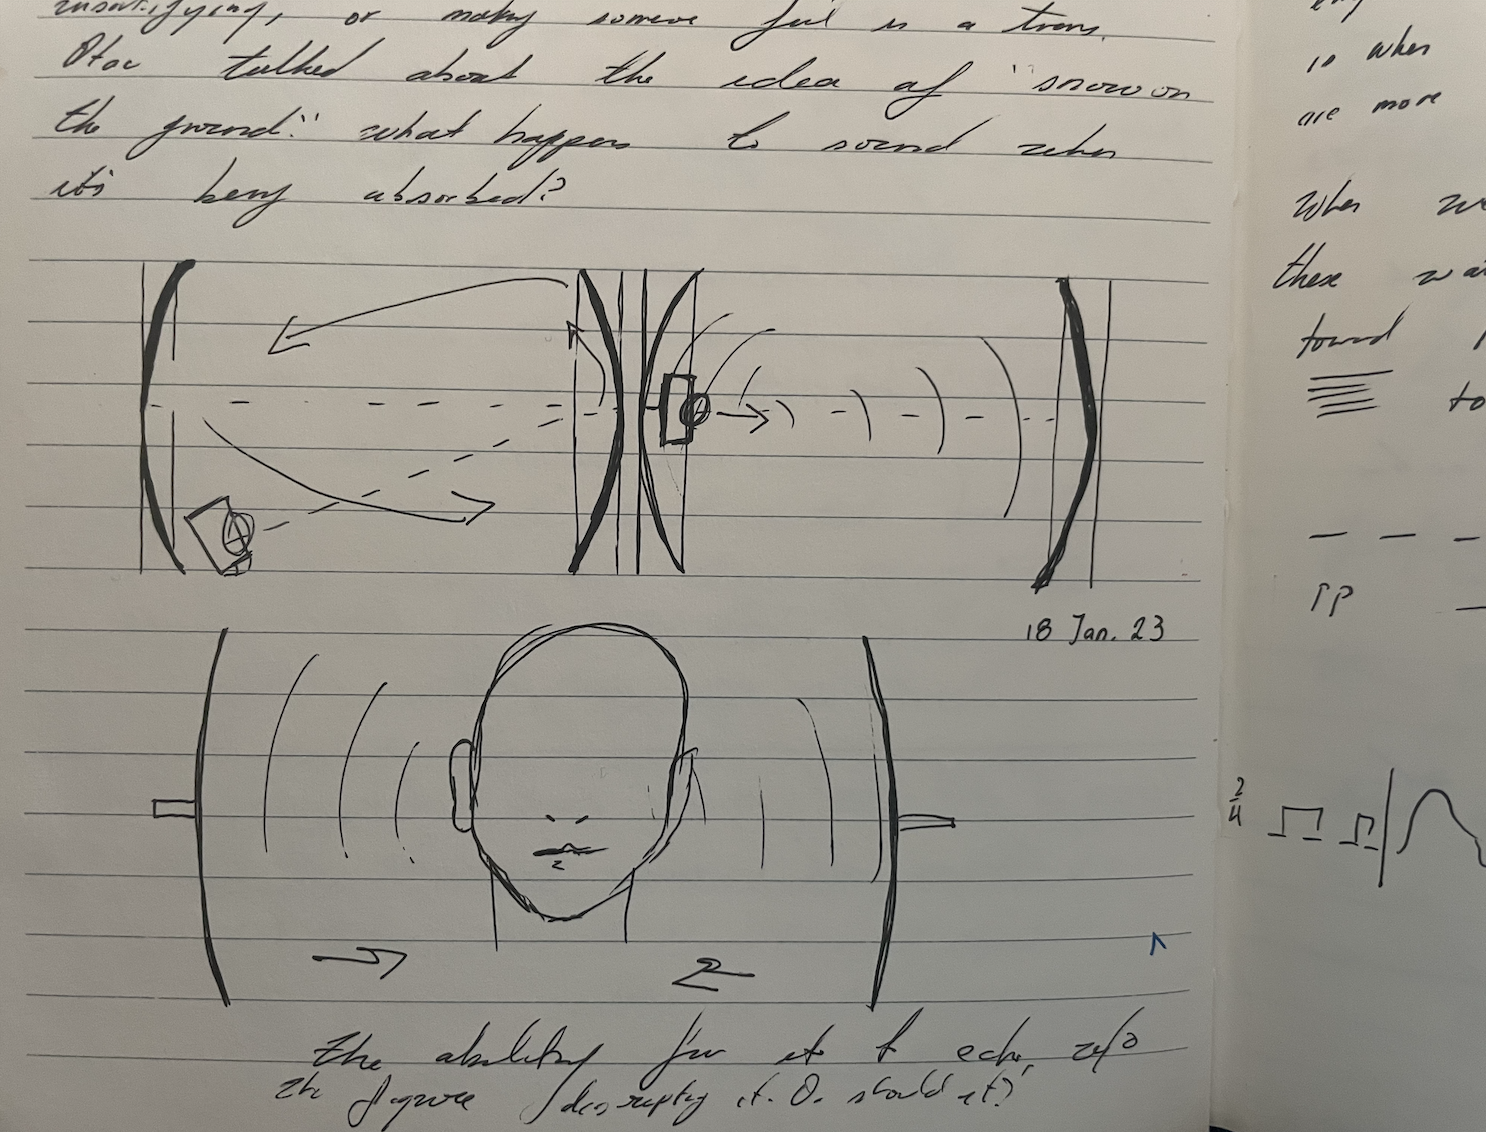 or making someone feel is a trans.
talked about the idea of "snow on
the ground." what happens to sound when
it's being absorbed?
18 Jan. 23
the ability for it to echo, w/o
the figure disrupting it. Or should it?
is when
are more
when we
these wa
toward
to
PP
2/4